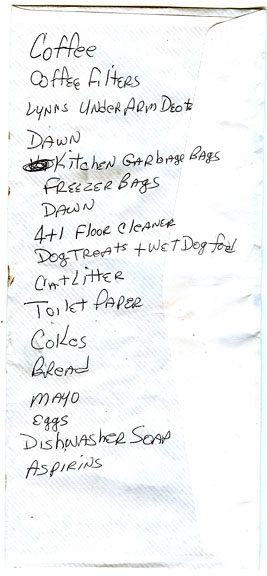 Coffee
Coffee Filters
Lynns UnderArm Deot
Dawn
Kitchen Garbage Bags
Freezer Bags
Dawn
4+1 Floor Cleaner
Dog Treats + Wet Dog food
Cat Litter
Toilet Paper
Cokes
Bread
Mayo
eggs
Dishwasher Soap
Aspirins